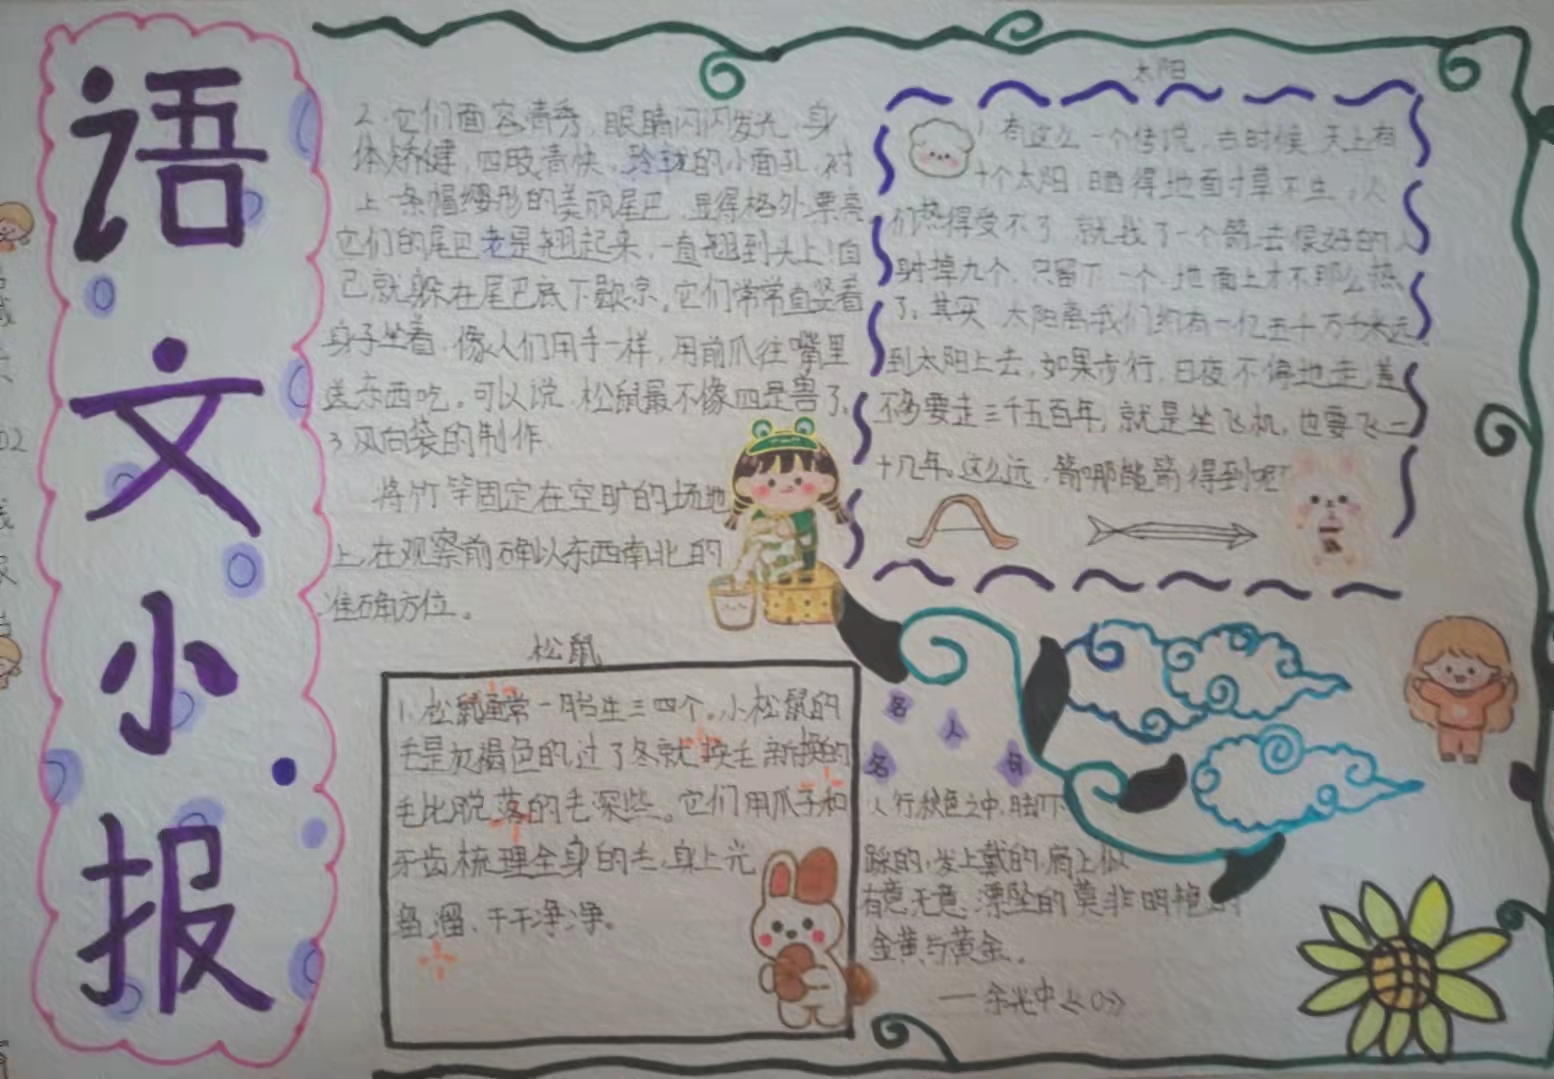 语文小报
2.它们面容清秀,眼睛闪闪发光,身
体矫健,四肢轻快,玲珑的小面孔,衬
上一条帽缨形的美丽尾巴,显得格外漂亮
它们的尾巴老是翘起来,一直翘到头上,自
己就躲在尾巴底下歇凉。它们常常直竖着
身子坐着,像人们用手一样,用前爪往嘴里
送东西吃。可以说,松鼠最不像四足兽了。
3.风向袋的制作
将竹竿固定在空旷的场地
上,在观察前确以东西南北的
准确方位。
太阳
1.有这么一个传说,古时候,天上有
十个太阳,晒得地面寸草不生,人
们热得受不了,就找了一个箭去很好的人
射掉九个,只留下一个,地面上才不那么热
了。其实,太阳离我们约有一亿五千万千米远
到太阳上去,如果步行,日夜不停地走,差
不多要走三千五百年,就是坐飞机,也要飞一
十几年。这么远,箭哪能箭得到呢
松鼠
1.松鼠通常一胎生三四个。小松鼠的
毛是灰褐色的,过了冬就换毛,新换的
毛比脱落的毛深些。它们用爪子和
牙齿梳理全身的毛,身上光
溜溜、干干净净。
名人名句
人行秋色之中,脚下
踩的,发上戴的,肩上似
有意无意漂坠的,莫非明艳的
金黄与黄金。
——余光中